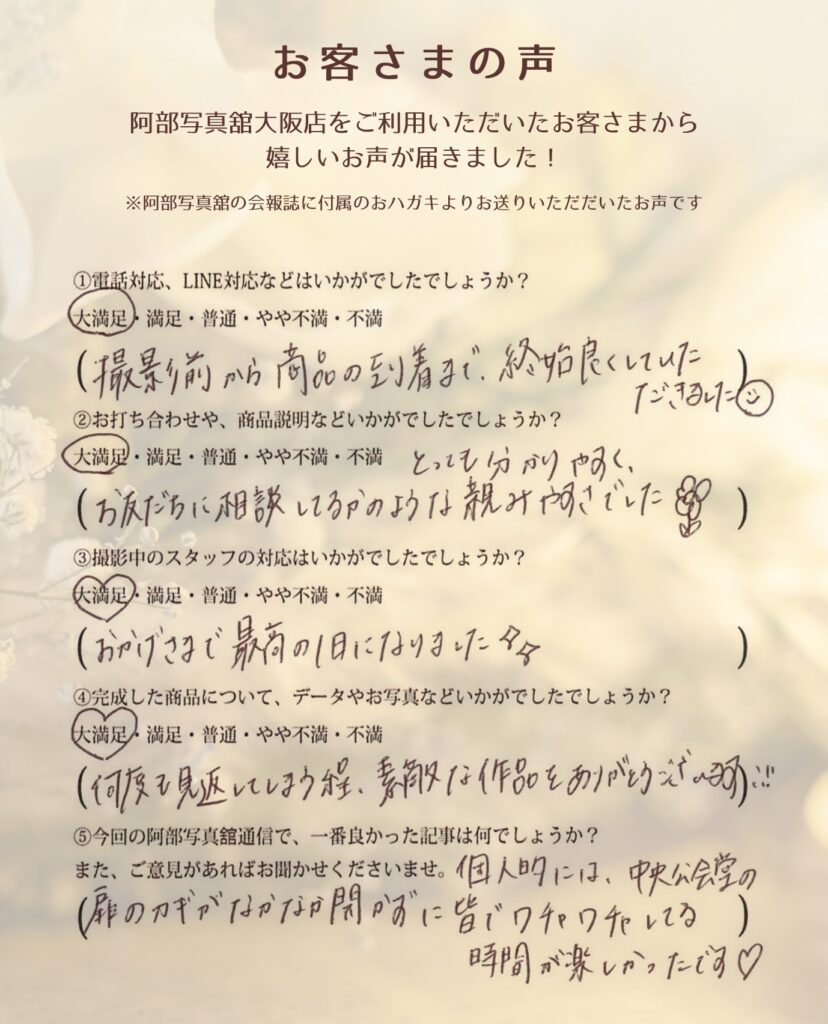 お客さまの声
阿部写真舘大阪店をご利用いただいたお客さまから
嬉しいお声が届きました！
※阿部写真舘の会報誌に付属のおハガキよりお送りいただだいたお声です
①電話対応、LINE対応などはいかがでしたでしょうか？
大満足・満足・普通・やや不満・不満
(撮影前から商品の到着まで、終始良くしていた)
だきました
②お打ち合わせや、商品説明などいかがでしたでしょうか？
大満足・満足・普通・やや不満・不満 とっても分かりやすく、
(お友だちに相談してるかのような親みやすさでした)
③撮影中のスタッフの対応はいかがでしたでしょうか？
大満足・満足・普通・やや不満・不満
(おかげさまで最高の1日になりました)
④完成した商品について、データやお写真などいかがでしたでしょうか？
大満足・満足・普通・やや不満・不満
(何度も見返してしまう程、素敵な作品をありがとうございます)!!!
⑤今回の阿部写真舘通信で、一番良かった記事は何でしょうか？
また、ご意見があればお聞かせくださいませ。個人的には、中央公会堂の
(扉のカギがなかなか開かずに皆でワチャワチャしてる)
時間が楽しかったです♡